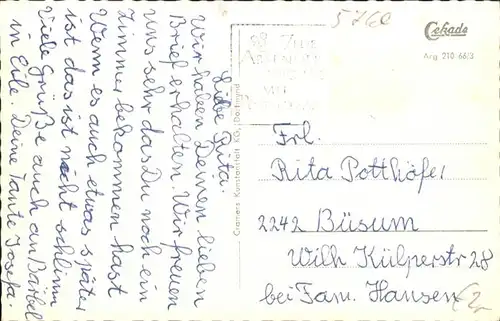 Liebe Rita.
Wir haben Deinen lieben
Brief erhalten. Wir freuen
uns sehr das Du noch ein
Zimmer bekommen hast
Wenn es auch etwas später
ist das ist nicht schlimm
Viele Grüße auch an Bärbel
in Eile Deine Tante Josefa.
Cramers Kunstanstalt KG, Dortmund
5760
Cekade
Arg 210 66/3
Frl.
Rita Potthöfer
2242 Büsum
Wilh Külperstr 28
bei Fam. Hansen